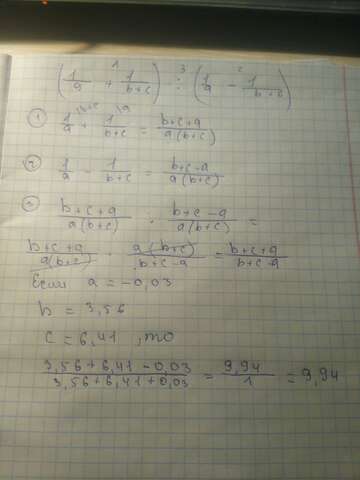 (1/a + 1/(b+c)) : (1/a − 1/(b+c))
1 3 2
① 1/a + 1/(b+c) = (b+c+a)/(a(b+c))
② 1/a − 1/(b+c) = (b+c−a)/(a(b+c))
③ (b+c+a)/(a(b+c)) : (b+c−a)/(a(b+c)) =
(b+c+a)/(a(b+c)) · (a(b+c))/(b+c−a) = (b+c+a)/(b+c−a)
Если a = −0,03
b = 3,56
c = 6,41 , то
(3,56+6,41−0,03)/(3,56+6,41+0,03) = 9,94/1 = 9,94